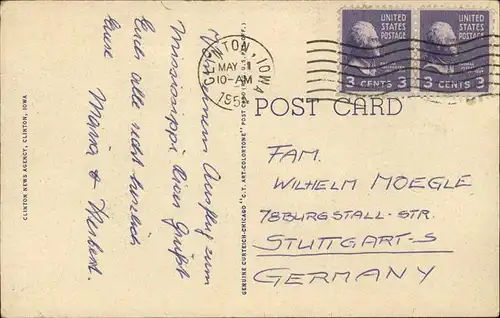 Von einem Ausflug zum
Mississippi River Grüßt
Euch alle recht herzlich
Eure
Maria & Herbert.
CLINTON NEWS AGENCY, CLINTON, IOWA
GENUINE CURTEICH-CHICAGO "C.T. ART-COLORTONE" POST CARD (REG. U.S. PAT. OFF.)
CLINTON, IOWA
MAY 1
10-AM
UNITED
STATES
POSTAGE
3 CENTS 3
UNITED
STATES
POSTAGE
3 CENTS 3
POST CARD
FAM.
WILHELM MOEGLE
78 BURGSTALL-STR.
STUTTGART-S
GERMANY